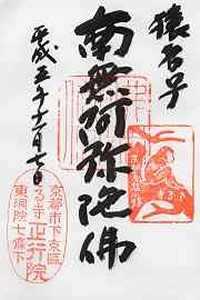 猿寺
南無阿弥陀佛
平成五年十一月七日
京都市下京區
さる寺 正行院
東洞院七条下